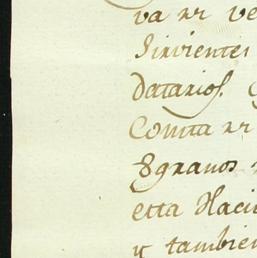 va nr ve
Sirvientes
datarios.
Conita nr
8 granos
etta Haci
y tambien